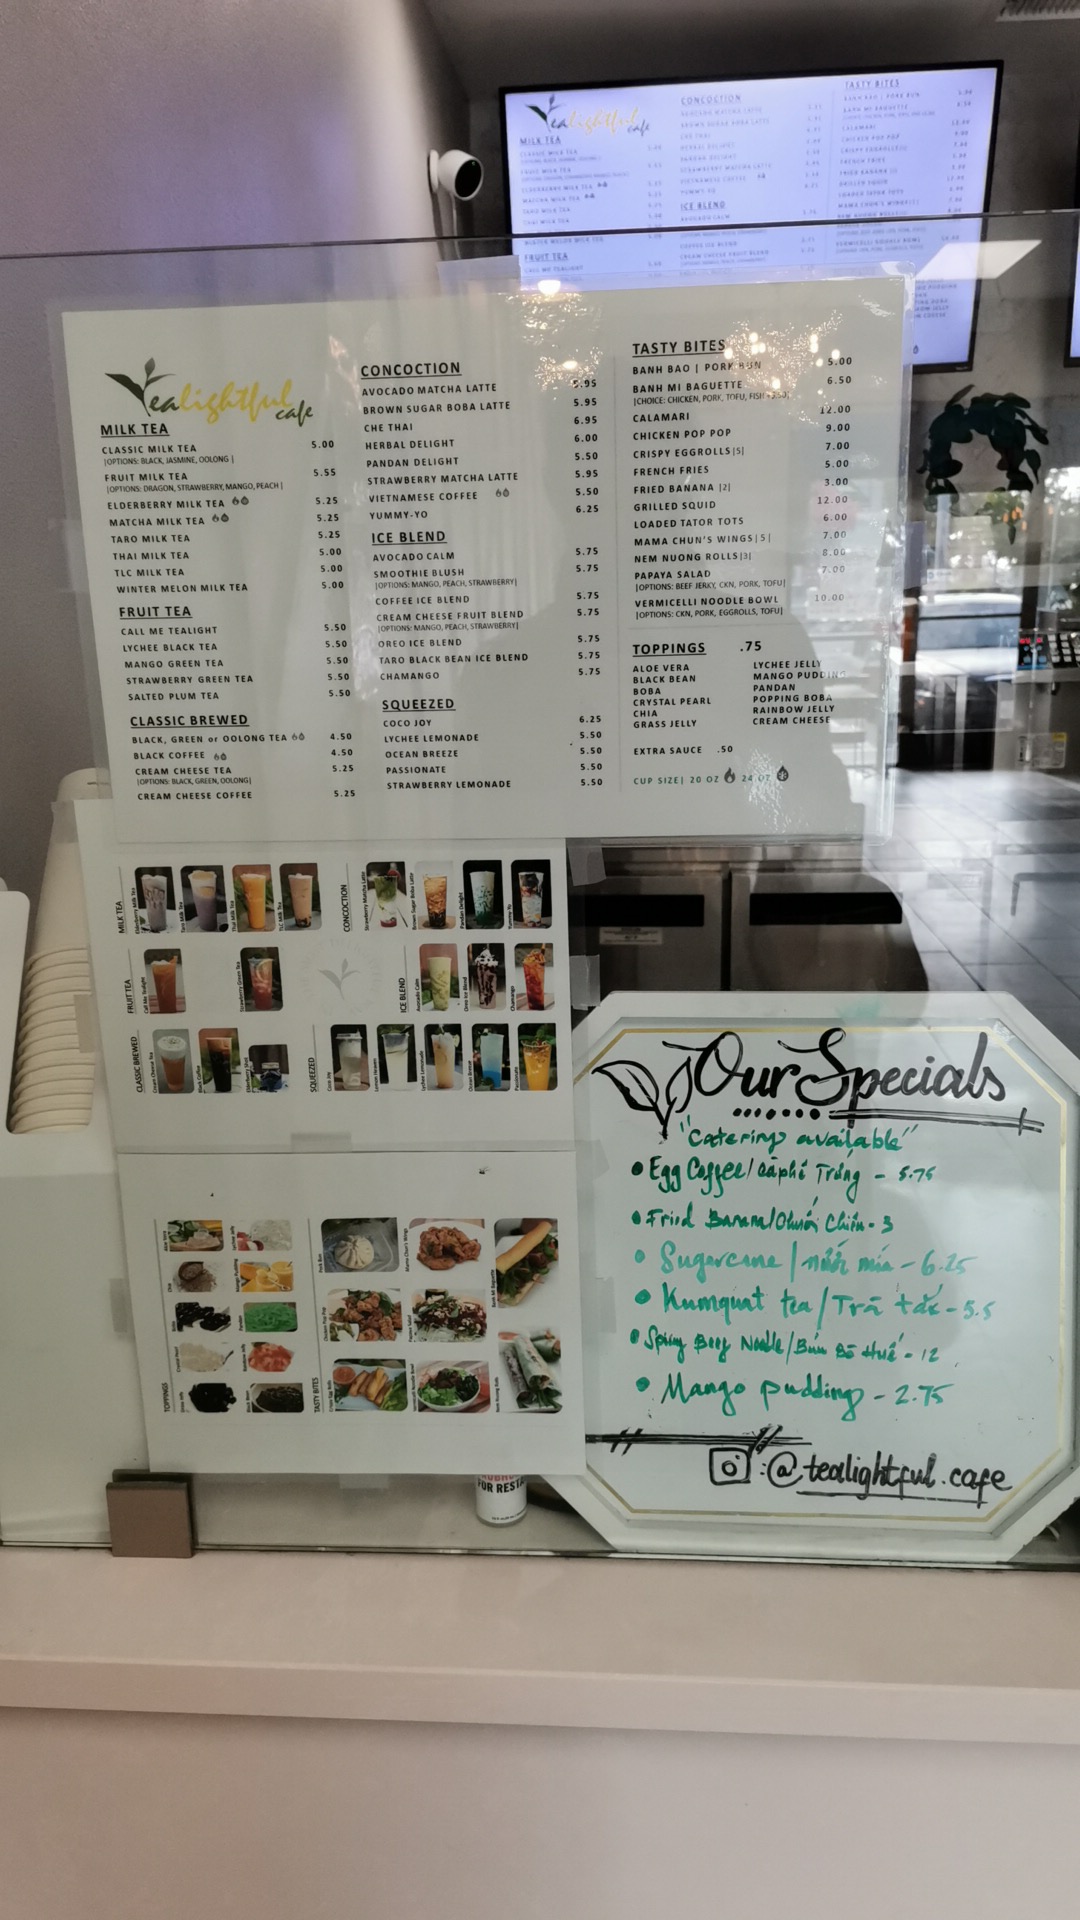 Tealightful cafe
MILK TEA
CLASSIC MILK TEA 5.00
|OPTIONS: BLACK, JASMINE, OOLONG |
FRUIT MILK TEA 5.55
|OPTIONS: DRAGON, STRAWBERRY, MANGO, PEACH |
ELDERBERRY MILK TEA 5.25
MATCHA MILK TEA 5.25
TARO MILK TEA 5.25
THAI MILK TEA 5.00
TLC MILK TEA 5.00
WINTER MELON MILK TEA 5.00
FRUIT TEA
CALL ME TEALIGHT 5.50
LYCHEE BLACK TEA 5.50
MANGO GREEN TEA 5.50
STRAWBERRY GREEN TEA 5.50
SALTED PLUM TEA 5.50
CLASSIC BREWED
BLACK, GREEN or OOLONG TEA 4.50
BLACK COFFEE 4.50
CREAM CHEESE TEA 5.25
|OPTIONS: BLACK, GREEN, OOLONG|
CREAM CHEESE COFFEE 5.25
CONCOCTION
AVOCADO MATCHA LATTE 5.95
BROWN SUGAR BOBA LATTE 5.95
CHE THAI 6.95
HERBAL DELIGHT 6.00
PANDAN DELIGHT 5.50
STRAWBERRY MATCHA LATTE 5.95
VIETNAMESE COFFEE 5.50
YUMMY-YO 6.25
ICE BLEND
AVOCADO CALM 5.75
SMOOTHIE BLUSH 5.75
|OPTIONS: MANGO, PEACH, STRAWBERRY|
COFFEE ICE BLEND 5.75
CREAM CHEESE FRUIT BLEND 5.75
|OPTIONS: MANGO, PEACH, STRAWBERRY|
OREO ICE BLEND 5.75
TARO BLACK BEAN ICE BLEND 5.75
CHAMANGO 5.75
SQUEEZED
COCO JOY 6.25
LYCHEE LEMONADE 5.50
OCEAN BREEZE 5.50
PASSIONATE 5.50
STRAWBERRY LEMONADE 5.50
TASTY BITES
BANH BAO | PORK BUN 5.00
BANH MI BAGUETTE 6.50
|CHOICE: CHICKEN, PORK, TOFU, FISH
CALAMARI 12.00
CHICKEN POP POP 9.00
CRISPY EGGROLLS|5| 7.00
FRENCH FRIES 5.00
FRIED BANANA |2| 3.00
GRILLED SQUID 12.00
LOADED TATOR TOTS 6.00
MAMA CHUN'S WINGS|5| 7.00
NEM NUONG ROLLS|3| 8.00
PAPAYA SALAD 7.00
|OPTIONS: BEEF JERKY, CKN, PORK, TOFU|
VERMICELLI NOODLE BOWL 10.00
|OPTIONS: CKN, PORK, EGGROLLS, TOFU|
TOPPINGS .75
ALOE VERA LYCHEE JELLY
BLACK BEAN MANGO PUDDING
BOBA PANDAN
CRYSTAL PEARL POPPING BOBA
CHIA RAINBOW JELLY
GRASS JELLY CREAM CHEESE
EXTRA SAUCE .50
CUP SIZE| 20 OZ 24 OZ
MILK TEA
CONCOCTION
FRUIT TEA
ICE BLEND
CLASSIC BREWED
SQUEEZED
TOPPINGS
TASTY BITES
Our Specials
"Catering available"
• Egg Coffee/Càphê Trứng - 5.75
• Fried Banana/Chuối Chiên - 3
• Sugarcane / nước mía - 6.25
• Kumquat tea / Trà tắc - 5.5
• Spicy Beef Noodle/Bún Bò Huế - 12
• Mango pudding - 2.75
: @tealightful.cafe